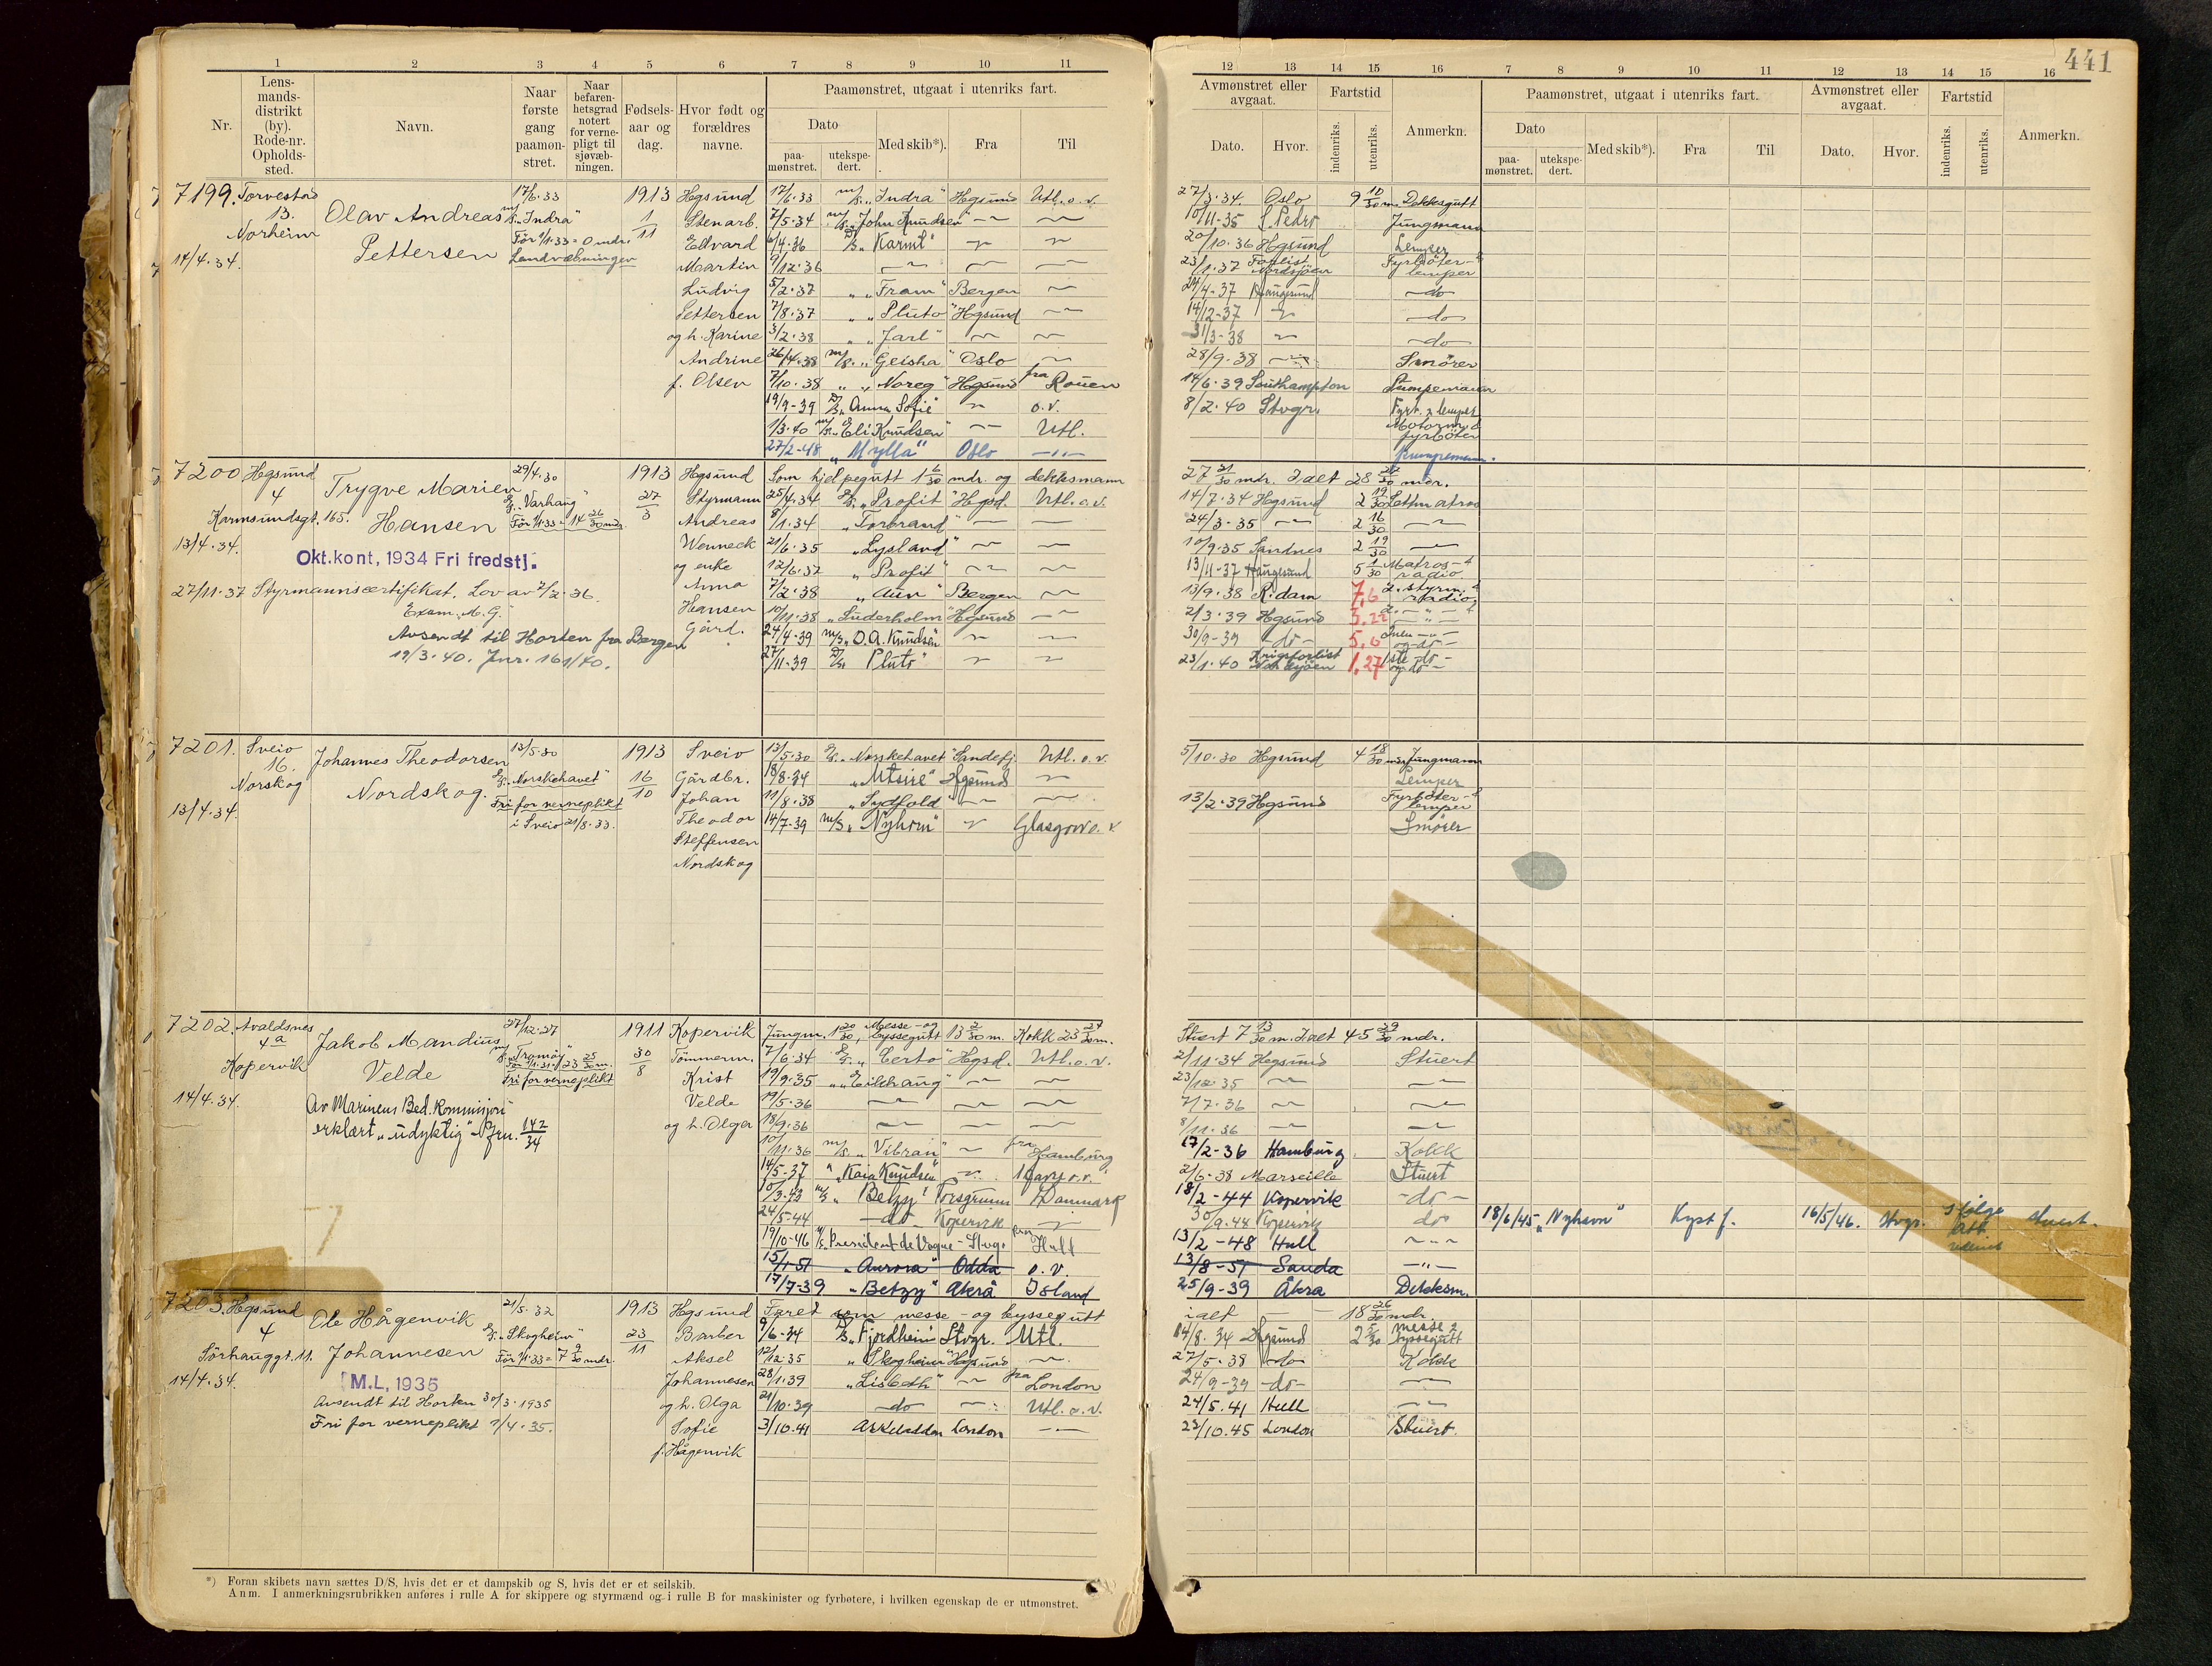 441
1 2 3 4 5 6 7 8 9 10 11
12 13 14 15 16 7 8 9 10 11 12 13 14 15 16
Nr.
Lens-
mands-
distrikt
(by).
Rode-nr.
Opholds-
sted.
Navn.
Naar
første
gang
paamøn-
stret.
Naar
befaren-
hetsgrad
notert
for verne-
pligt til
sjøvæb-
ningen.
Fødsels-
aar og
dag.
Hvor født og
forældres
navne.
Paamønstret, utgaat i utenriks fart.
Dato
paa-
mønstret.
utekspe-
dert.
Med skib*).
Fra
Til
Avmønstret eller
avgaat.
Dato.
Hvor.
Fartstid
indenriks.
utenriks.
Anmerkn.
Paamønstret, utgaat i utenriks fart.
Dato
paa-
mønstret.
utekspe-
dert.
Med skib*).
Fra
Til
Avmønstret eller
avgaat.
Dato.
Hvor.
Fartstid
indenriks.
utenriks.
Anmerkn.
7199. Torvestad
13.
Norheim
14/4.34.
Olav Andreas
Pettersen
17/6.33
m/s "Indra"
Før 1/1.33 = 0 mdr.
Landvæbningen
1913
1/11
Hgsund
Stenarb.
Edvard
Martin
Ludvig
Pettersen
og h. Karine
Andrine
f. Olsen
17/6.33 m/s "Indra" Hgsund Utl. o.v. 27/3.34. Oslo 9 10/30 m. Dekksgutt
7/5.34 m/s "John Knudsen" 10/11-35 S. Pedro Jungmann
6/4.36 D/s "Karmt" 20/10.36 Hgsund Lemper
9/12.36 23/1.37 Forlist Nordsjøen Fyrbøter- & lemper
5/2.37 " "Fram" Bergen 24/4-37 Haugesund do
7/8.37 " "Pluto" Hgsund 14/12-37 do
3/2.38 " "Jarl" 31/3-38 do
26/4.38 m/s. "Geisha" Oslo 28/9.38 Smører
7/10.38 " "Noreg" Hgsund fra Rouen 14/6.39 Southampton Pumpemann
19/9-39 D/s "Anna Sofie" o.v. 8/2.40 Stvgr. Fyrb. & lemper
1/3.40 m/s "Eli Knudsen" Utl. Motorm. & fyrbøter
27/2-48 "Mylla" Oslo Pumpemann.
7200 Hgsund
4
Karmsundsgt. 165.
13/4.34.
Trygve Marien
Hansen
29/4.30
S/s. "Varhaug"
Før 1/1.33 = 14 26/30 mdr.
Okt.kont, 1934 Fri fredstj.
27/11.37 Styrmannscertifikat. Lov av 7/2.36.
Exam. M.G.
Avsendt til Horten fra Bergen
19/3.40. Jnr. 161/40.
1913
27/3
Hgsund
Styrmann
Andreas
Wenneck
og enke
Anna
Hansen
Gård.
Som hjelpegutt 1 6/30 mdr. og dekksmann 27 21/30 mdr. Ialt 28 27/30 mdr.
25/4.34 S/s. "Profit" Hgsd. Utl. o.v. 14/7.34 Hgsund 2 19/30 Lettmatros
8/1.34 "Torbrand" 24/3-35 2 16/30
21/6.35 "Lysland" 10/9.35 Sandnes 2 19/30
12/6.37 "Profit" 13/11-37 Haugesund 5 1/30 Matros- & radio.
7/2.38 "Aun" Bergen 13/9.38 R.dam 7,6 2. styrm. & radio
10/11.38 "Suderholm" Hgsund 2/3.39 Hgsund 3.22
24/4-39 m/s "O.A. Knudsen" 30/9-39 do 5,6
27/11-39 D/s "Pluto" 23/1.40 Krigsforlist Nordsjøen 1,27
7201. Sveio
16.
Norskog
13/4.34.
Johannes Theodorsen
Nordskog.
13/5.30
S/s. "Norskehavet"
Fri for verneplikt
i Sveio 21/8.33.
1913
16/10
Sveio
Gårdbr.
Johan
Theodor
Steffensen
Nordskog
13/5.30 S/s. "Norskehavet" Sandefj. Utl. o.v. 5/10.30 Hgsund 4 18/30 mdr Jungmann
18/8.34 "Utsire" Hgsund Lemper
11/8.38 "Sydfold" 13/2.39 Hgsund Fyrbøter- & lemper
14/7.39 m/s "Nyhorn" Glasgow o.v. Smører
7202. Avaldsnes
4 a
Kopervik
14/4.34.
Jakob Mandius
Velde
27/12.27
m/s. "Tromøy"
Før 1/1.31 = 23 25/30 m.
Fri for verneplikt
Av Marinens Bed. Kommisjon
erklært "udyktig" Jnr. 142/34
1911
30/8
Kopervik
Tømmerm.
Krist
Velde
og h. Olga
Jungm. 1 20/30, Messe- og byssegutt 13 2/30 m. Kokk 23 24/30 m. Stuert 7 13/30 m. Ialt 45 29/30 mdr.
7/6.34 S/s. "Certo" Hgsd. Utl. o.v. 2/11.34 Hgsund Stuert
19/9.35 "Eikhaug" 23/12.35
19/5.36 7/7.36
18/9.36 8/11.36
10/11.36 m/s. "Vibran" fra Hamburg 17/2-36 Hamburg Kokk
14/5.37 "Kaia Knudsen" 2/6-38 Marseille Stuert
10/3.43 m/s "Betzy" Torsgrunn Danmark 18/2-44 Kopervik do
24/5-44 do Kopervik 30/9.44 Kopervik do 18/6/45 "Nyhavn" Kyst f. 16/5/46. Stvgr. Stuert.
19/10-46 M/s President de Vogue - Stvgr fra Hull 13/2-48 Hull
15/1-51 "Aurora" Odda o.v. 13/8-51 Sauda
17/7-39 "Betzy" Akra Island 25/9-39 Åkra Dekksm.
7203. Hgsund
4
Sørhauggt. 11.
14/4.34.
Ole Hågenvik
Johannesen
21/5.32
S/s. "Skogheim"
Før 1/1.33 = 7 9/30 mdr.
M.L. 1935
Avsendt til Horten 30/3.1935
Fri for verneplikt 2/4.35.
1913
23/11
Hgsund
Barber
Aksel
Johannesen
og h. Olga
Sofie
f. Hågenvik
Faret som messe- og byssegutt ialt 18 26/30 mdr.
9/6-34 D/s. "Fjordheim" Stvgr. Utl. 14/8.34 Hgsund 2 5/30 messe & byssegutt
12/12.35 "Skogheim" Hgsund 27/5.38 do Kokk
28/1.39 "Lisbeth" fra London 24/9-39 do
21/10.39 do Utl. o.v. 24/5.41 Hull
3/10.41 Askeladden London 23/10.45 London Stuert.
*) Foran skibets navn sættes D/S, hvis det er et dampskib og S, hvis det er et seilskib.
Anm. I anmerkningsrubrikken anføres i rulle A for skippere og styrmænd og i rulle B for maskinister og fyrbøtere, i hvilken egenskap de er utmønstret.